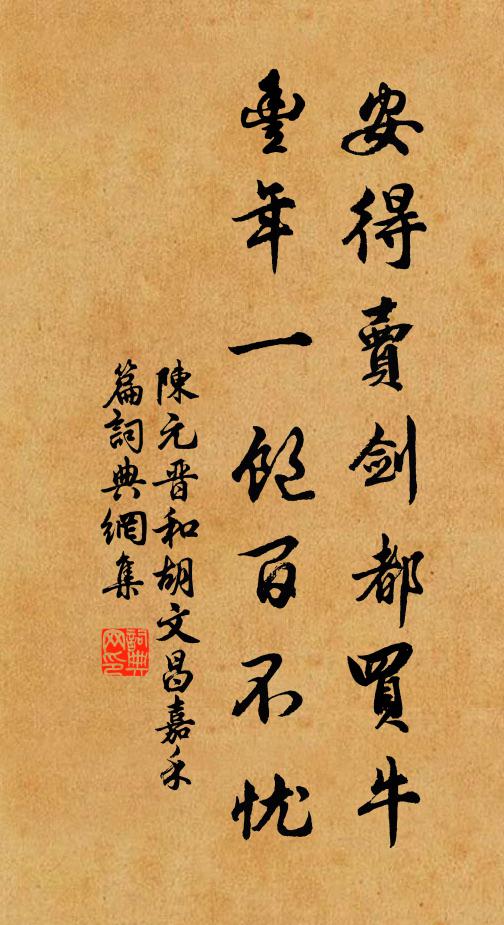 安得賣劍都買牛
豐年一飽百不忧
陳元晋和胡文昌嘉禾
篇詞典網集
詞典网印